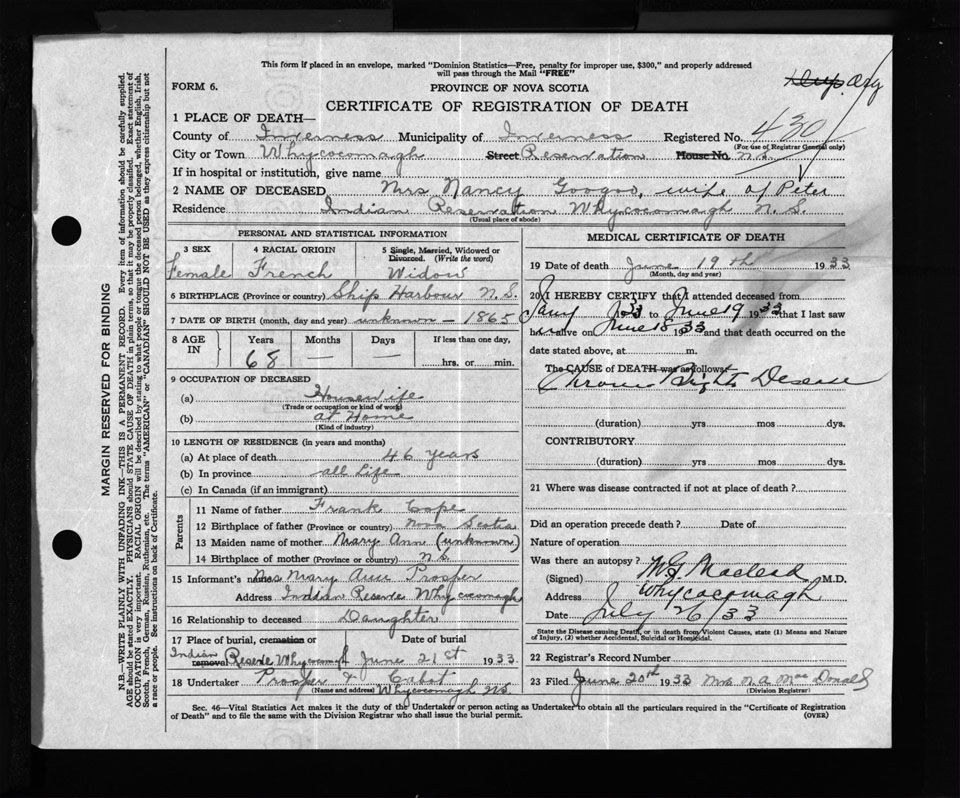 This form if placed in an envelope, marked "Dominion Statistics—Free, penalty for improper use, $300," and properly addressed
will pass through the Mail "FREE"
FORM 6.
PROVINCE OF NOVA SCOTIA
CERTIFICATE OF REGISTRATION OF DEATH
1 PLACE OF DEATH—
County of Inverness Municipality of Inverness Registered No. 430
(For use of Registrar General only)
City or Town Whycocomagh Street Reservation House No. N.S.
If in hospital or institution, give name
2 NAME OF DECEASED Mrs Nancy Googoo, wife of Peter
Residence Indian Reservation Whycocomagh N.S.
(Usual place of abode)
PERSONAL AND STATISTICAL INFORMATION
3 SEX 4 RACIAL ORIGIN 5 Single, Married, Widowed or Divorced. (Write the word)
Female French Widow
6 BIRTHPLACE (Province or country) Ship Harbour N.S.
7 DATE OF BIRTH (month, day and year) unknown — 1865
8 AGE IN Years Months Days If less than one day,
68 — — hrs. or min.
9 OCCUPATION OF DECEASED
(a) Housewife
(Trade or occupation or kind of work)
(b) at Home
(Kind of industry)
10 LENGTH OF RESIDENCE (in years and months)
(a) At place of death 46 years
(b) In province all Life
(c) In Canada (if an immigrant)
Parents
11 Name of father Frank Cope
12 Birthplace of father (Province or country) Nova Scotia
13 Maiden name of mother Mary Ann (unknown)
14 Birthplace of mother (Province or country) N.S.
15 Informant's name Mrs Mary Ann Prosper
Address Indian Reserve Whycocomagh
16 Relationship to deceased Daughter
17 Place of burial, cremation or removal Date of burial
Indian Reserve Whycocomagh June 21st 1933
18 Undertaker Prosper & Cabot
(Name and address) Whycocomagh N.S.
MEDICAL CERTIFICATE OF DEATH
19 Date of death June 19th 1933
(Month, day and year)
20 I HEREBY CERTIFY that I attended deceased from
Jany 1933 to June 19 1933 that I last saw
h alive on June 18 1933 and that death occurred on the
date stated above, at m.
The CAUSE of DEATH was as follows:
Chronic Brights Desease
(duration) yrs mos dys.
CONTRIBUTORY
(duration) yrs mos dys.
21 Where was disease contracted if not at place of death?
Did an operation precede death? Date of
Nature of operation
Was there an autopsy?
(Signed) MacLeod M.D.
Address Whycocomagh
Date July 26/33
State the Disease causing Death, or in death from Violent Causes, state (1) Means and Nature
of Injury, (2) whether Accidental, Suicidal or Homicidal.
22 Registrar's Record Number
23 Filed June 20th 1933 Mrs N A MacDonald
(Division Registrar)
Sec. 46—Vital Statistics Act makes it the duty of the Undertaker or person acting as Undertaker to obtain all the particulars required in the "Certificate of Registration
of Death" and to file the same with the Division Registrar who shall issue the burial permit. (OVER)
MARGIN RESERVED FOR BINDING
N.B.—WRITE PLAINLY WITH UNFADING INK—THIS IS A PERMANENT RECORD. Every item of information should be carefully supplied.
AGE should be stated EXACTLY. PHYSICIANS should STATE CAUSE OF DEATH in plain terms, so that it may be properly classified. Exact statement of
OCCUPATION is very important. RACIAL ORIGIN will be described by stating to what people or tongue the deceased person belonged, whether English, Irish,
Scotch, French, German, Russian, Ruthenian, etc. The terms "AMERICAN" or "CANADIAN" SHOULD NOT BE USED as they express citizenship but not
a race or people. See instructions on back of Certificate.